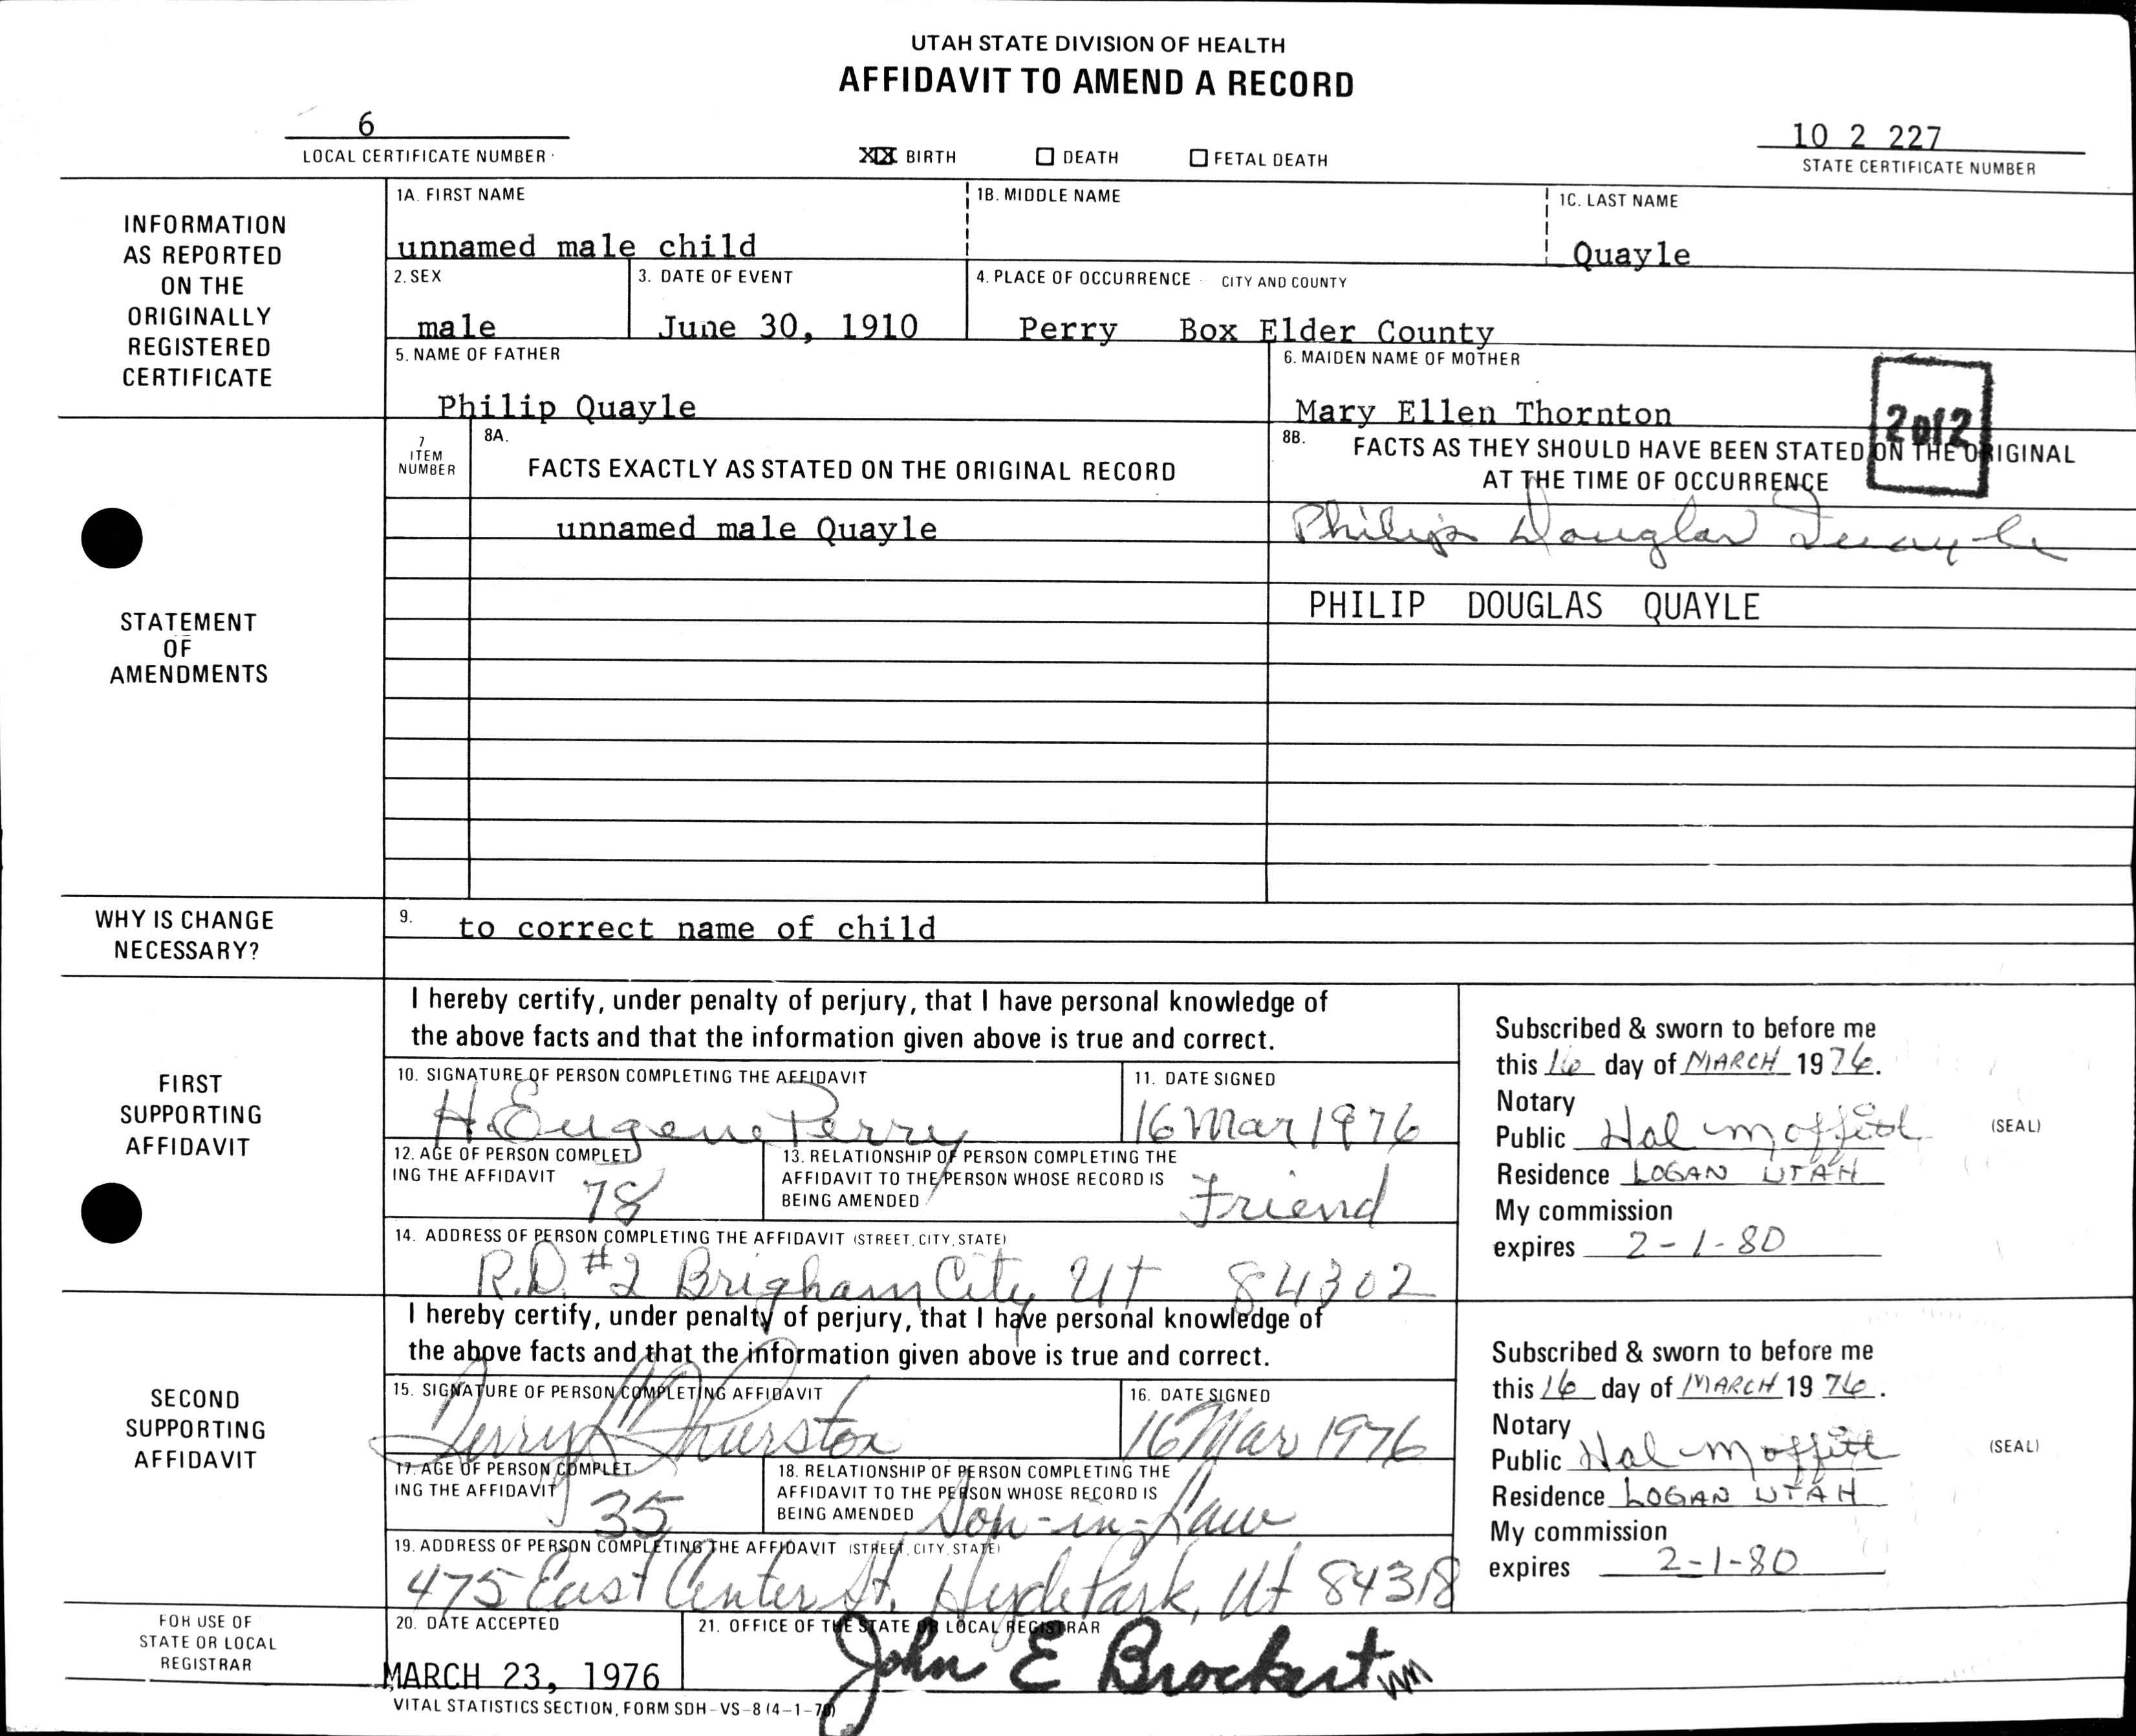 UTAH STATE DIVISION OF HEALTH
AFFIDAVIT TO AMEND A RECORD
6
LOCAL CERTIFICATE NUMBER
XX BIRTH DEATH FETAL DEATH
10 2 227
STATE CERTIFICATE NUMBER
INFORMATION
AS REPORTED
ON THE
ORIGINALLY
REGISTERED
CERTIFICATE
1A. FIRST NAME 1B. MIDDLE NAME 1C. LAST NAME
unnamed male child Quayle
2. SEX 3. DATE OF EVENT 4. PLACE OF OCCURRENCE CITY AND COUNTY
male June 30, 1910 Perry Box Elder County
5. NAME OF FATHER 6. MAIDEN NAME OF MOTHER
Philip Quayle Mary Ellen Thornton
2 of 2
STATEMENT
OF
AMENDMENTS
7
ITEM
NUMBER
8A.
FACTS EXACTLY AS STATED ON THE ORIGINAL RECORD
8B.
FACTS AS THEY SHOULD HAVE BEEN STATED ON THE ORIGINAL
AT THE TIME OF OCCURRENCE
unnamed male Quayle Philip Douglas Quayle
PHILIP DOUGLAS QUAYLE
WHY IS CHANGE
NECESSARY?
9. to correct name of child
FIRST
SUPPORTING
AFFIDAVIT
I hereby certify, under penalty of perjury, that I have personal knowledge of
the above facts and that the information given above is true and correct.
10. SIGNATURE OF PERSON COMPLETING THE AFFIDAVIT 11. DATE SIGNED
H. Eugene Perry 16 Mar 1976
12. AGE OF PERSON COMPLET
ING THE AFFIDAVIT 78
13. RELATIONSHIP OF PERSON COMPLETING THE
AFFIDAVIT TO THE PERSON WHOSE RECORD IS
BEING AMENDED Friend
14. ADDRESS OF PERSON COMPLETING THE AFFIDAVIT (STREET, CITY, STATE)
R.D. #2 Brigham City Ut 84302
Subscribed & sworn to before me
this 16 day of MARCH 1976.
Notary
Public Hal Moffitt (SEAL)
Residence LOGAN UTAH
My commission
expires 2-1-80
SECOND
SUPPORTING
AFFIDAVIT
I hereby certify, under penalty of perjury, that I have personal knowledge of
the above facts and that the information given above is true and correct.
15. SIGNATURE OF PERSON COMPLETING AFFIDAVIT 16. DATE SIGNED
Thurston 16 Mar 1976
17. AGE OF PERSON COMPLET
ING THE AFFIDAVIT 35
18. RELATIONSHIP OF PERSON COMPLETING THE
AFFIDAVIT TO THE PERSON WHOSE RECORD IS
BEING AMENDED Son-in-Law
19. ADDRESS OF PERSON COMPLETING THE AFFIDAVIT (STREET, CITY, STATE)
475 East Center St. Hyde Park, Ut 84318
Subscribed & sworn to before me
this 16 day of MARCH 1976.
Notary
Public Hal Moffitt (SEAL)
Residence LOGAN UTAH
My commission
expires 2-1-80
FOR USE OF
STATE OR LOCAL
REGISTRAR
20. DATE ACCEPTED 21. OFFICE OF THE STATE OR LOCAL REGISTRAR
MARCH 23, 1976 John E Brockert
VITAL STATISTICS SECTION, FORM SDH-VS-8 (4-1-